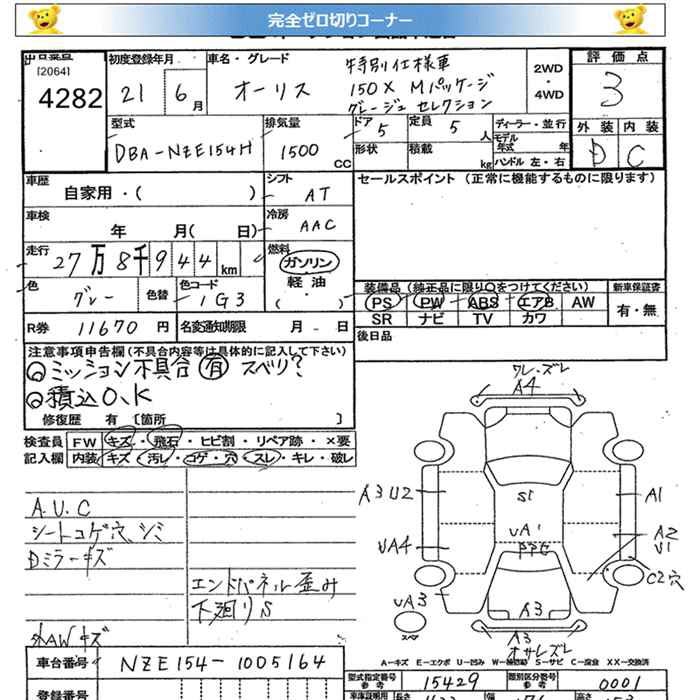 完全ゼロ切りコーナー
[2064]
4282
初度登録年月
21 6月
車名・グレード
オーリス
特別仕様車
150X Mパッケージ
グレージュ セレクション
2WD
・
4WD
評価点
3
外装 内装
D C
型式
DBA-NZE154H
排気量
1500 CC
ドア 5
定員 5 人
ディーラー・並行
モデル年式 年
形状
積載 kg
ハンドル 左・右
車歴
自家用・( )
シフト
AT
セールスポイント (正常に機能するものに限ります)
車検
年 月( 日)
冷房
AAC
走行
27万8千944km
燃料
ガソリン
軽油
( )
色
グレー
色替
色コード
1G3
装備品 (純正品に限り○をつけてください)
新車保証書
PS PW ABS エアB AW
SR ナビ TV カワ
有・無
R券 11670円
名変通知期限 月 日
後日品
注意事項申告欄(不具合内容等は具体的に記入して下さい)
ミッション不具合 有 スベリ?
積込O.K
修復歴 有 [箇所 ]
検査員 FW キズ・飛石・ヒビ割・リペア跡・×要
記入欄 内装 キズ・汚レ・コゲ・穴・スレ・キレ・破レ
A.U.C
シートコゲ穴、シミ
Dミラーキズ
エンドパネル歪み
下廻りS
外AWキズ
ワレ・ズレ
A4
A3U2
S1
A1
UA4
UA1
A2
U1
C2穴
UA3
スペア
A3
A3
オサレズレ
A-キズ E-エクボ U-凹ミ S-サビ C-腐食 XX-交換済
車台番号 NZE154-1005164
登録番号
型式指定番号 参考 15429
類別区分番号 参考 0001